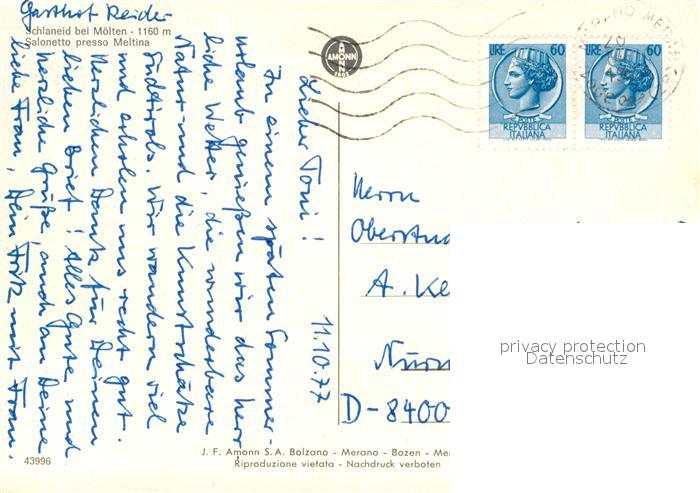 Gasthof Reider
Schlaneid bei Mölten - 1160 m
Salonetto presso Meltina
AMONN
LIRE 60
POSTE
REPVBBLICA
ITALIANA
LIRE 60
POSTE
REPVBBLICA
ITALIANA
11.10.77
Lieber Toni!
In einem späten Sommer-
urlaub genießen wir das herr-
liche Wetter, die wunderbare
Natur und die Kunstschätze
Südtirols. Wir wandern viel
und erholen uns recht gut.
Herzlichen Dank für Deinen
lieben Brief! Alles Gute und
herzliche Grüße, auch an Deine
liebe Frau, Dein Fritz mit Frau.
Herrn
Oberstud
A. Ke
Nürn
D-8400
privacy protection
Datenschutz
43996
J. F. Amonn S.A. Bolzano - Merano - Bozen - Me
Riproduzione vietata - Nachdruck verboten